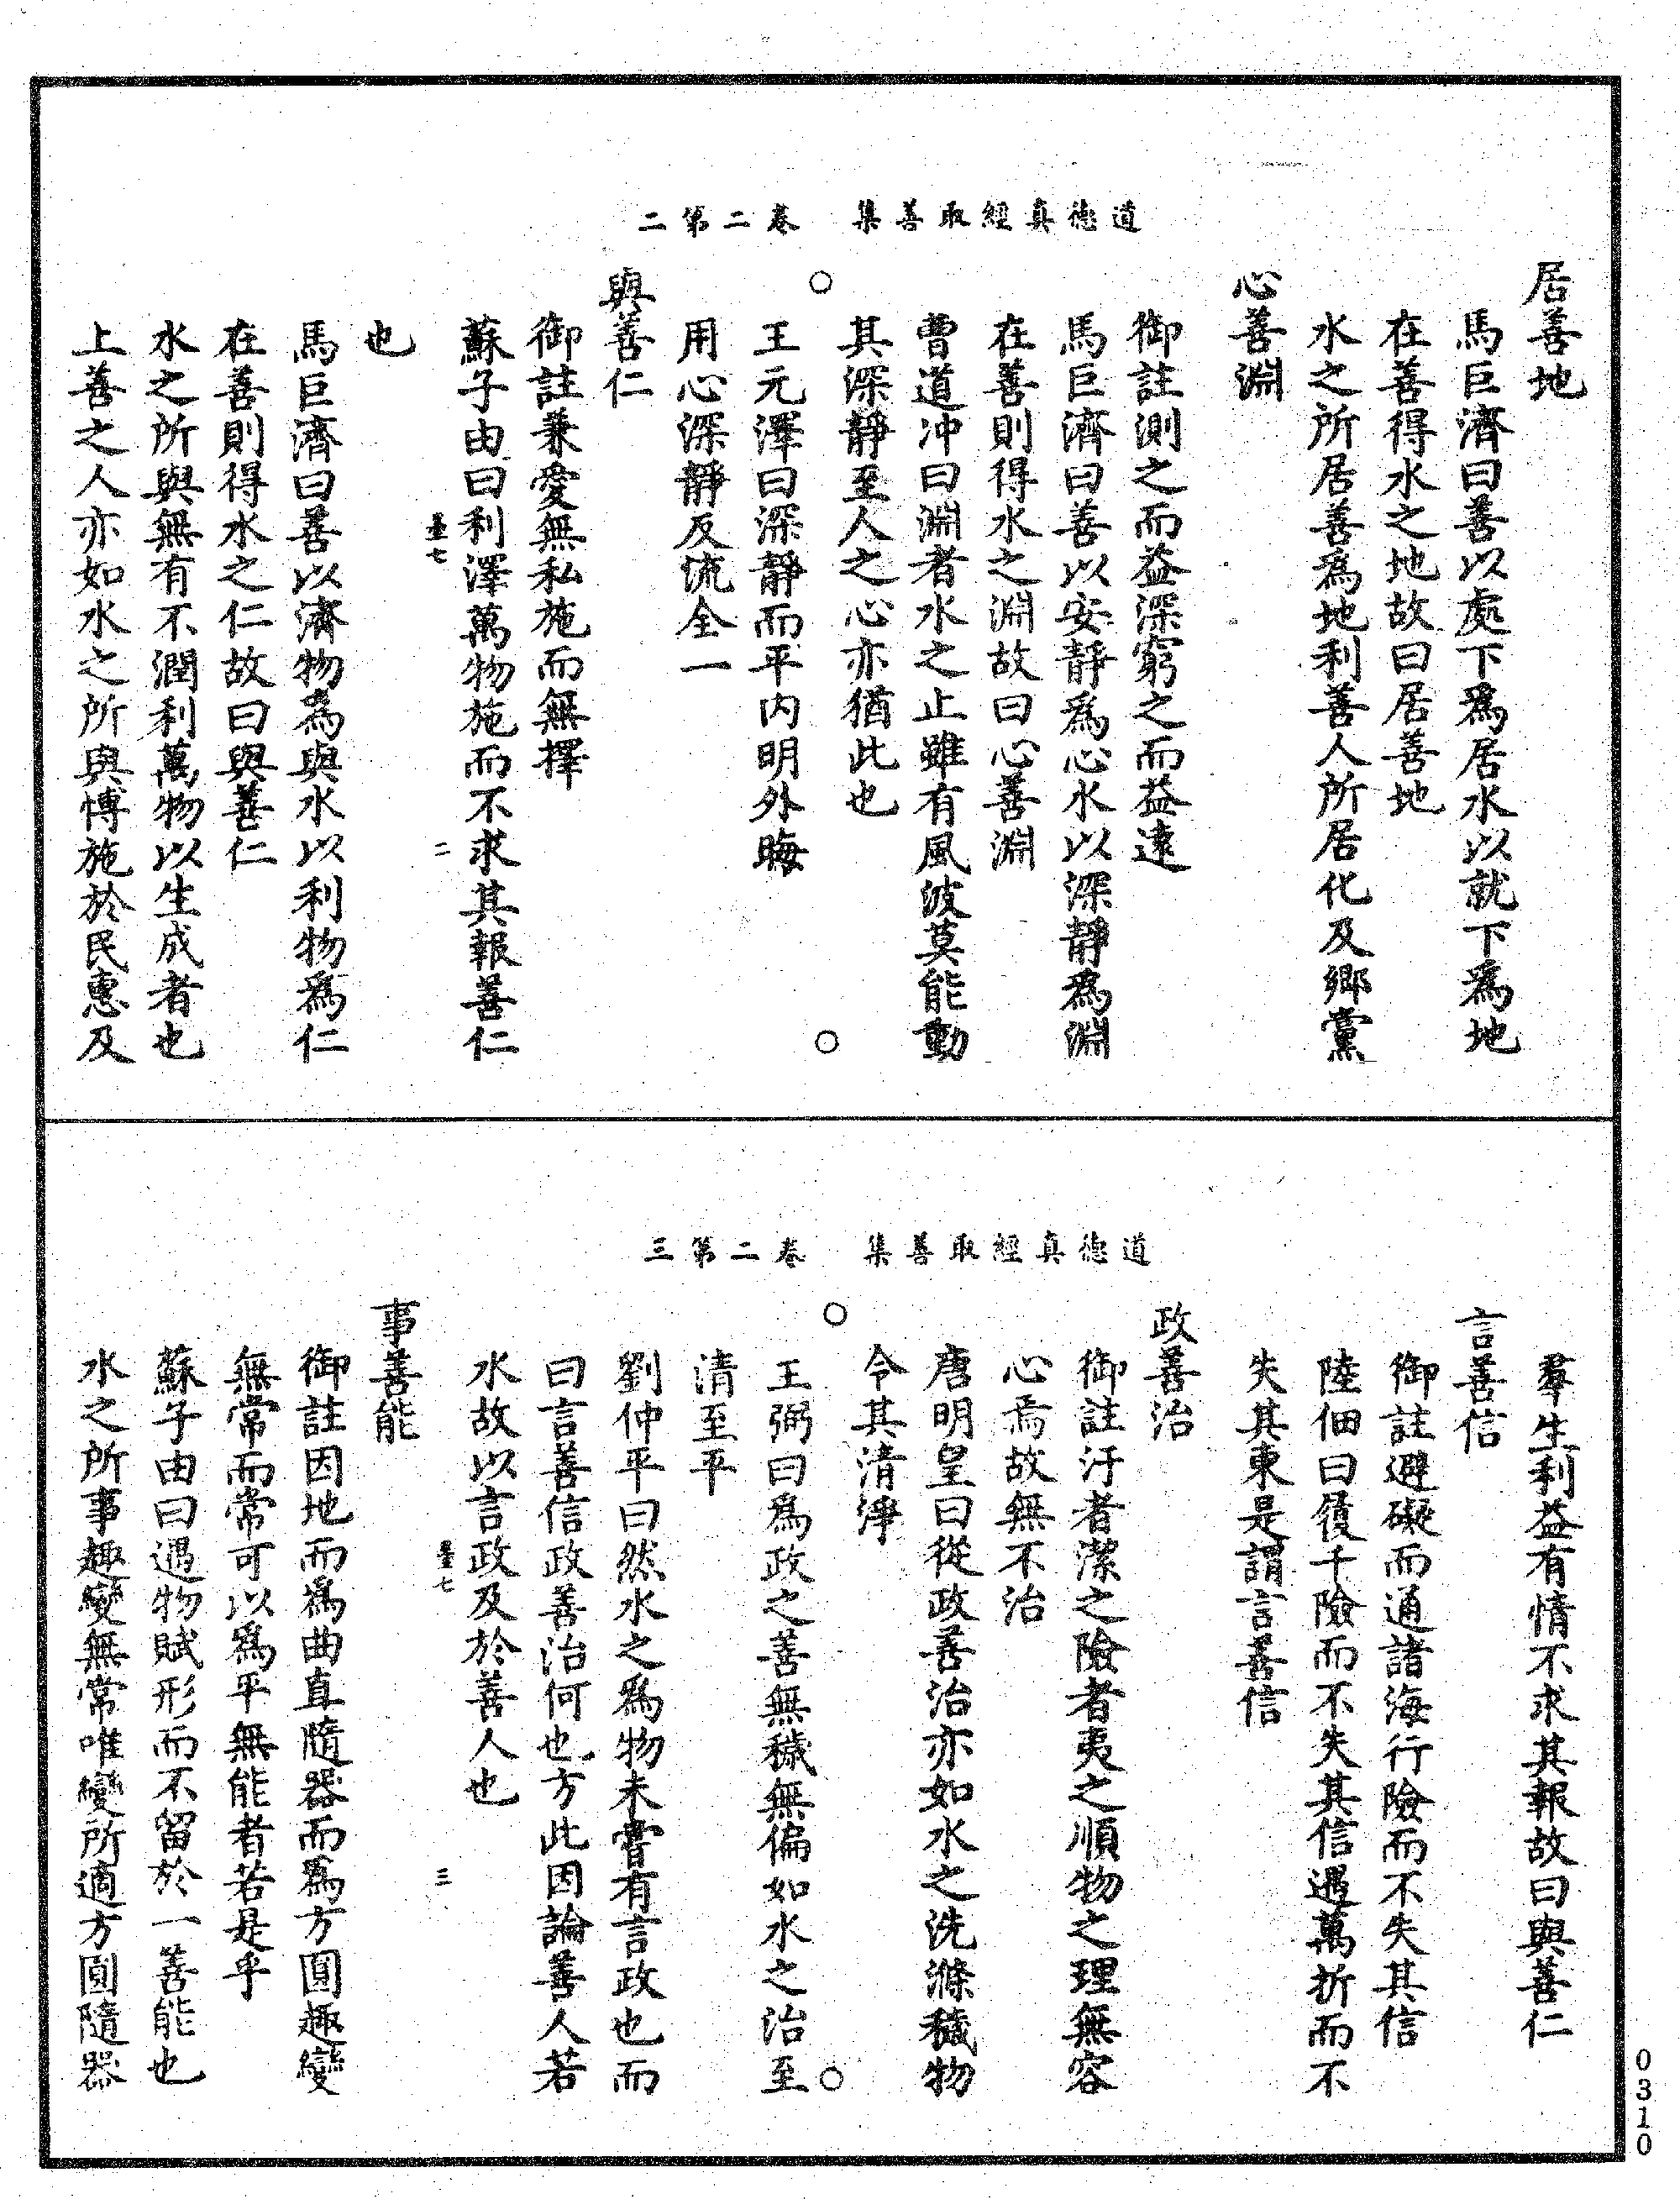 道德真經取善集　卷二第二
居善地
馬巨濟曰善以處下爲居水以就下爲地
在善得水之地故曰居善地
水之所居善爲地利善人所居化及鄉黨
心善淵
御註測之而益深窮之而益遠
馬巨濟曰善以安靜爲心水以深靜爲淵
在善則得水之淵故曰心善淵
曹道冲曰淵者水之止雖有風波莫能動
其深靜至人之心亦猶此也
王元澤曰深靜而平內明外晦
用心深靜反流全一
與善仁
御註兼愛無私施而無擇
蘇子由曰利澤萬物施而不求其報善仁
也
馬巨濟曰善以濟物爲與水以利物爲仁
在善則得水之仁故曰與善仁
水之所與無有不潤利萬物以生成者也
上善之人亦如水之所與愽施於民惠及
道德真經取善集　卷二第三
羣生利益有情不求其報故曰與善仁
言善信
御註避礙而通諸海行險而不失其信
陸佃曰履千險而不失其信遇萬折而不
失其東是謂言善信
政善治
御註汙者潔之險者夷之順物之理無容
心焉故無不治
唐明皇曰從政善治亦如水之洗滌穢物
令其清淨
王弼曰爲政之善無穢無偏如水之治至
清至平
劉仲平曰然水之爲物未甞有言政也而
曰言善信政善治何也方此因論善人若
水故以言政及於善人也
事善能
御註因地而爲曲直隨器而爲方圓趣變
無常而常可以爲平無能者若是乎
蘇子由曰遇物賦形而不留於一善能也
水之所事趣變無常唯變所適方圓隨器
0310